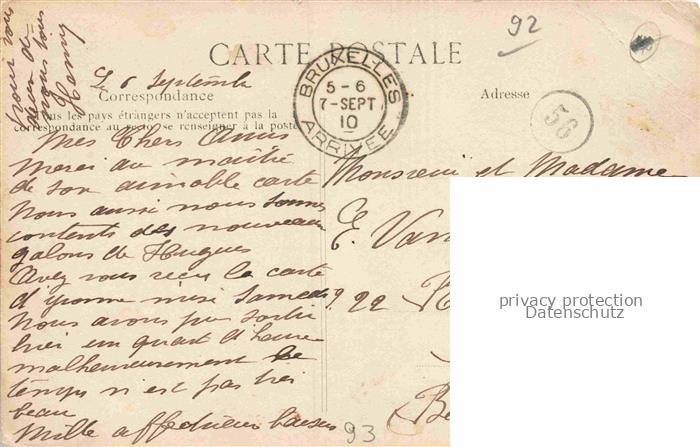 92
CARTE POSTALE
BRUXELLES
5-6
7-SEPT
10
ARRIVÉE
56
Le 6 Septembre
Correspondance
Adresse
Tous les pays étrangers n'acceptent pas la
correspondance au recto, se renseigner à la poste
Mes Chers Amis
Merci au maître
de son aimable carte
Nous aussi nous sommes
contents des nouveaux
galons de Hugues
Avez vous reçu la carte
d'yvonne mise Samedi
Nous avons pu sortir
hier un quart d'heure
malheureusement le
temps n'est pas très
beau
Mille affectueux baisers
pour vous
deux de
nous tous
Monsieur et Madame
E. Van
922
93
privacy protection
Datenschutz